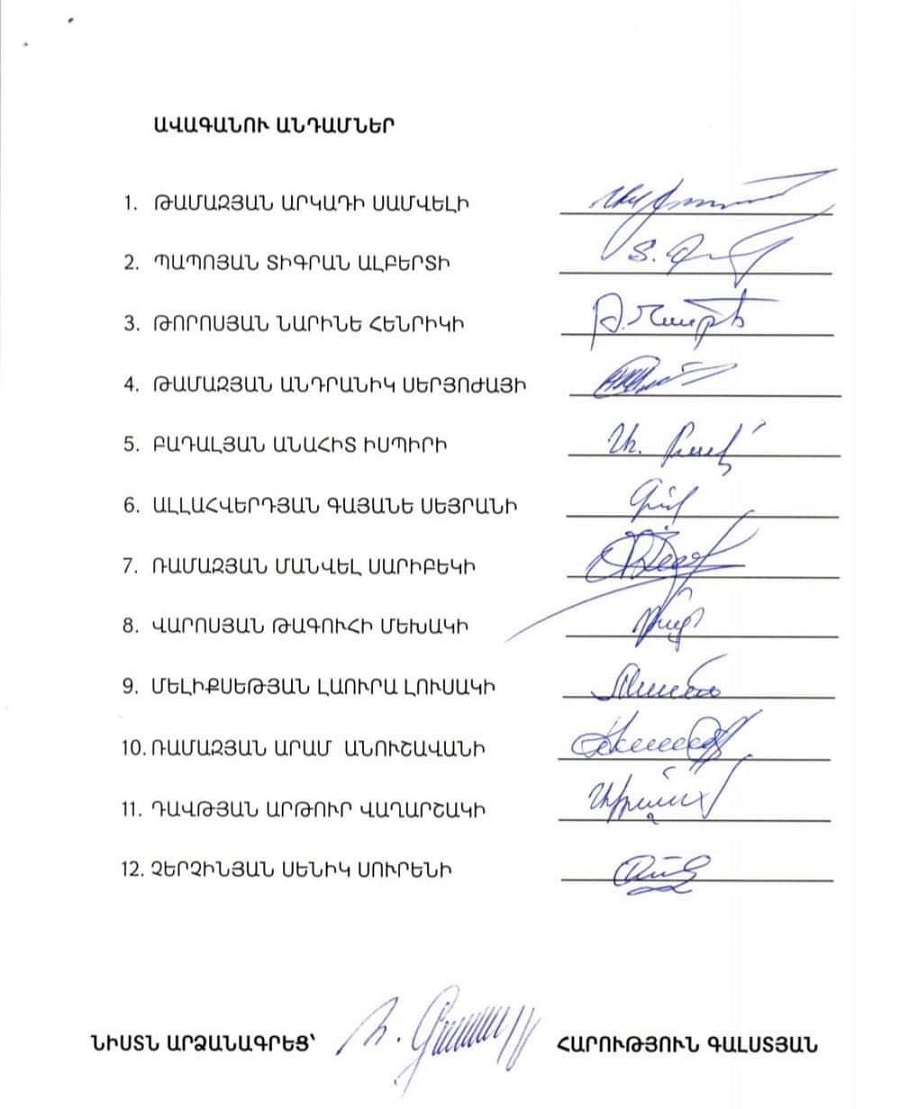 ԱՎԱԳԱՆՈՒ ԱՆԴԱՄՆԵՐ
1. ԹԱՄԱԶՅԱՆ ԱՐԿԱԴԻ ՍԱՄՎԵԼԻ
2. ՊԱՊՈՅԱՆ ՏԻԳՐԱՆ ԱԼԲԵՐՏԻ
3. ԹՈՐՈՍՅԱՆ ՆԱՐԻՆԵ ՀԵՆՐԻԿԻ
4. ԹԱՄԱԶՅԱՆ ԱՆԴՐԱՆԻԿ ՍԵՐՅՈԺԱՅԻ
5. ԲԱԴԱԼՅԱՆ ԱՆԱՀԻՏ ԻՍՊԻՐԻ
6. ԱԼԼԱՀՎԵՐԴՅԱՆ ԳԱՅԱՆԵ ՍԵՅՐԱՆԻ
7. ՌԱՄԱԶՅԱՆ ՄԱՆՎԵԼ ՍԱՐԻԲԵԿԻ
8. ՎԱՐՈՍՅԱՆ ԹԱԳՈՒՀԻ ՄԵԽԱԿԻ
9. ՄԵԼԻՔՍԵԹՅԱՆ ԼԱՈՒՐԱ ԼՈՒՍԱԿԻ
10. ՌԱՄԱԶՅԱՆ ԱՐԱՄ ԱՆՈՒՇԱՎԱՆԻ
11. ԴԱՎԹՅԱՆ ԱՐԹՈՒՐ ՎԱՂԱՐՇԱԿԻ
12. ՉԵՐՉԻՆՅԱՆ ՍԵՆԻԿ ՍՈՒՐԵՆԻ
ՆԻՍՏՆ ԱՐՁԱՆԱԳՐԵՑ՝ ՀԱՐՈՒԹՅՈՒՆ ԳԱԼՍՏՅԱՆ